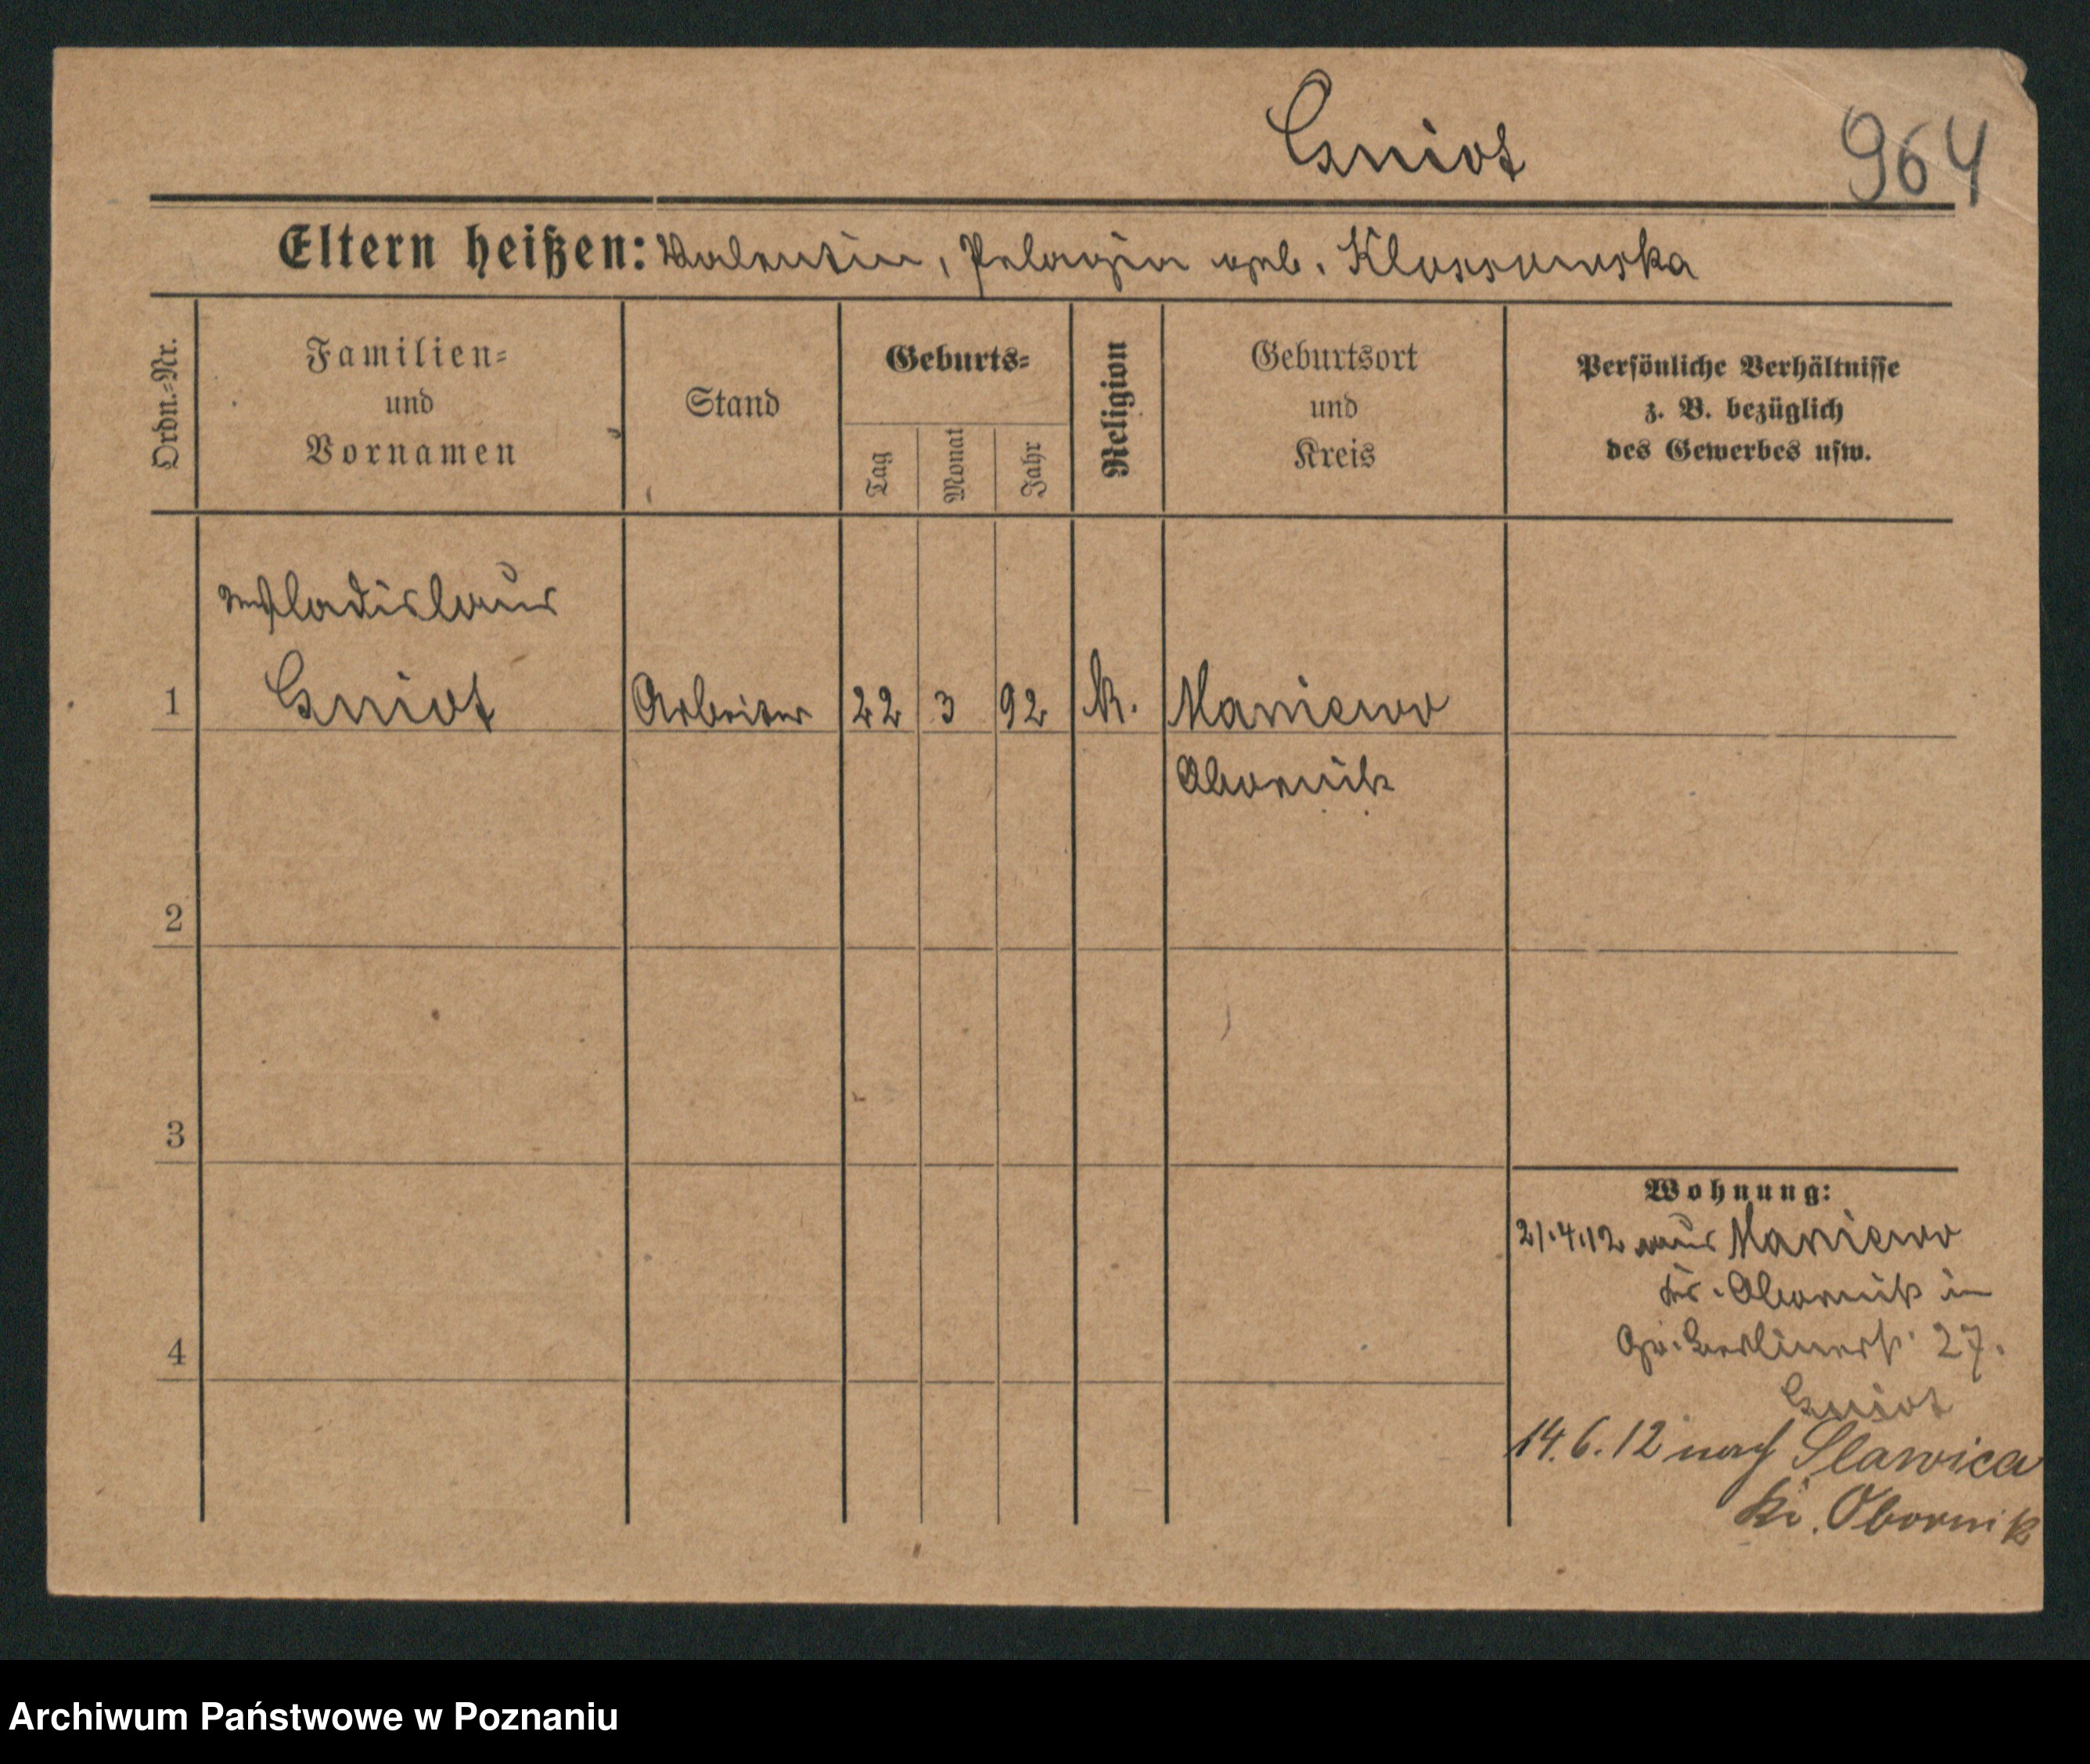 Gniot
964
Eltern heißen: Valentin, Pelagia geb. Klossowska
Ordn.=Nr.
Familien=
und
Vornamen
Stand
Geburts=
Tag
Monat
Jahr
Religion
Geburtsort
und
Kreis
Persönliche Verhältnisse
z. B. bezüglich
des Gewerbes usw.
Wladislaus
1 Gniot Arbeiter 22 3 92 K. Maniewo
Obornik
2
3
4
Wohnung:
21.4.12 aus Maniewo
Kr. Obornik in
Gr. Berlinerst. 27.
Gniot
14.6.12 nach Slawica
Kr. Obornik
Archiwum Państwowe w Poznaniu